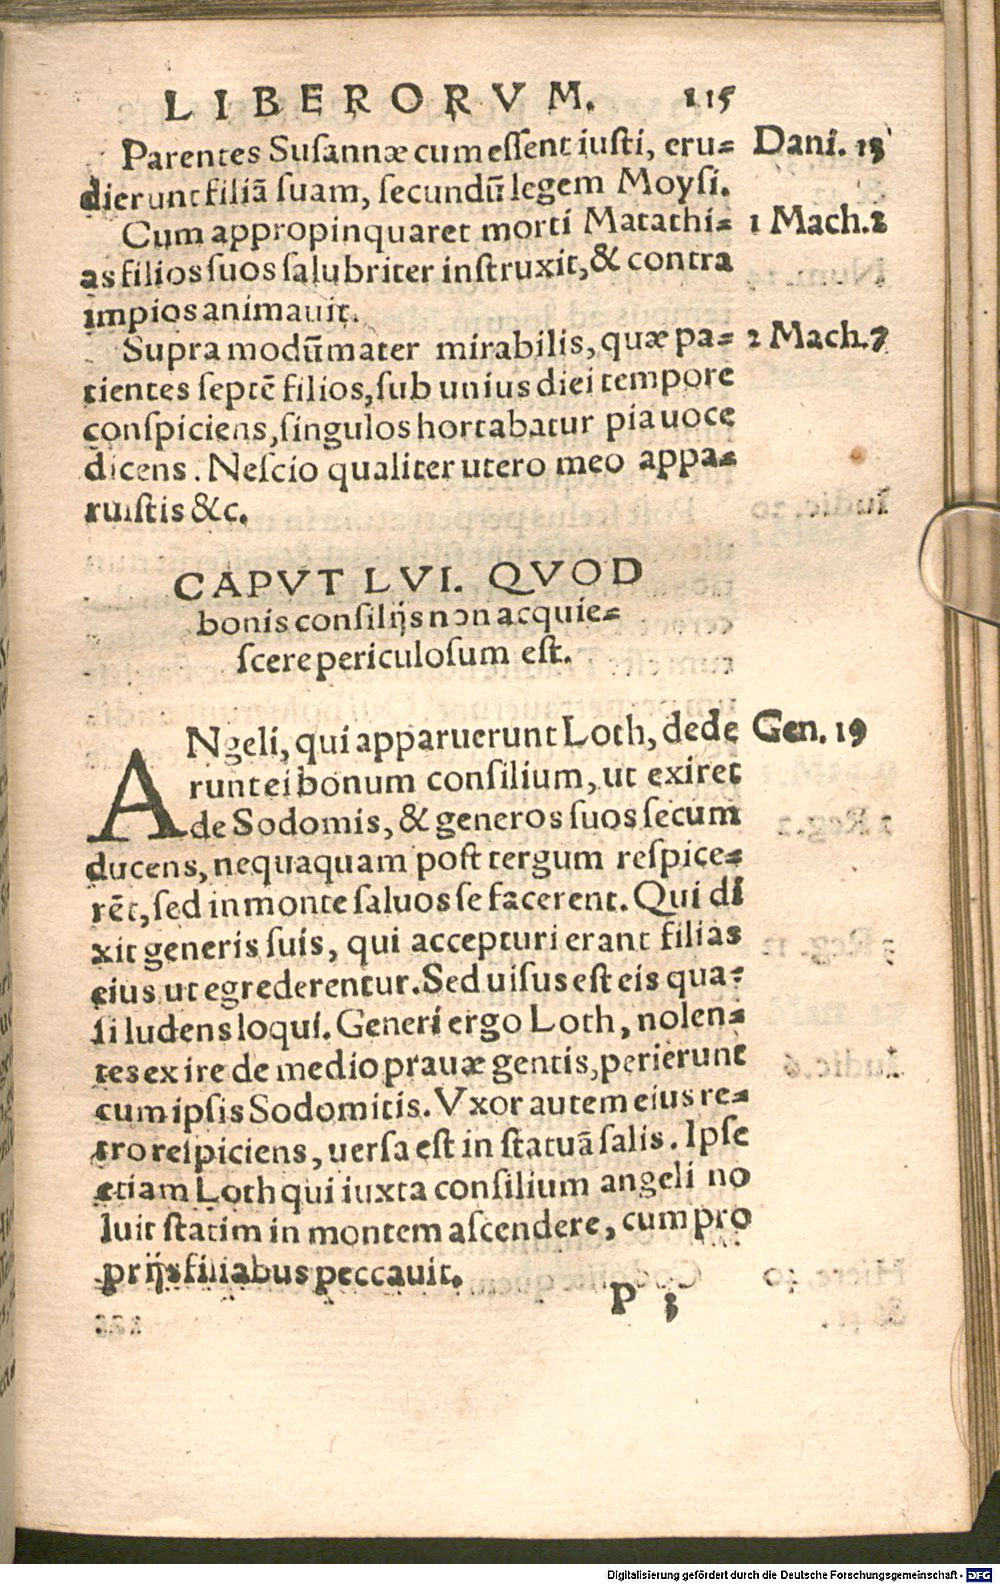 LIBERORVM. 115
Parentes Susannæ cum eſſent iusti, eru= Dani. 13
dierunt filiã ſuam, ſecundũ legem Moysi.
Cum appropinquaret morti Matathi= 1 Mach. 2
as filios ſuos ſalubriter inſtruxit, & contra
impios animauit.
Supra modũ mater mirabilis, quæ pa= 2 Mach. 7
rientes ſeptẽ filios, ſub unius diei tempore
conſpiciens, ſingulos hortabatur pia uoce
dicens. Neſcio qualiter utero meo appa=
ruiſtis &c.
CAPVT LVI. QVOD
bonis conſilijs non acquie=
ſcere periculoſum eſt.
ANgeli, qui apparuerunt Loth, dede Gen. 19
runt ei bonum conſilium, ut exiret
de Sodomis, & generos ſuos ſecum
ducens, nequaquam poſt tergum reſpice=
rẽt, ſed in monte ſaluos ſe facerent. Qui di
xit generis ſuis, qui accepturi erant filias
eius ut egrederentur. Sed uiſus eſt eis qua=
ſi ludens loqui. Generi ergo Loth, nolen=
tes exire de medio prauæ gentis, perierunt
cum ipſis Sodomitis. Vxor autem eius re=
tro reſpiciens, uerſa eſt in ſtatuã ſalis. Ipſe
etiam Loth qui iuxta conſilium angeli no
luit ſtatim in montem aſcendere, cum pro
prijs filiabus peccauit.
P 3
Digitalisierung gefördert durch die Deutsche Forschungsgemeinschaft - DFG